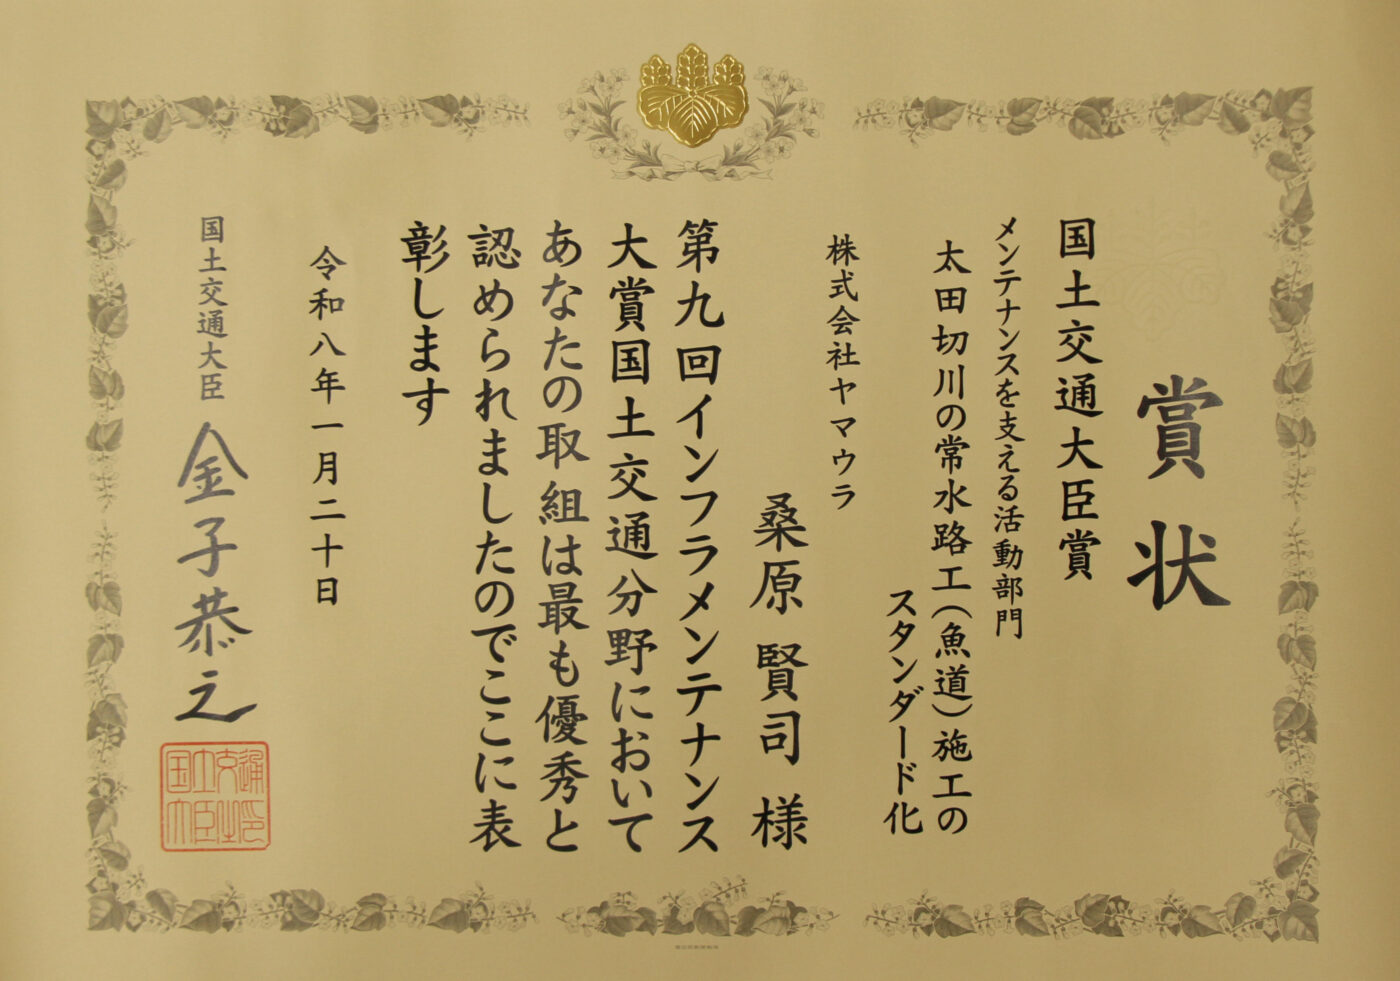 賞状
国土交通大臣賞
メンテナンスを支える活動部門
太田切川の常水路工(魚道)施工の
スタンダード化
株式会社ヤマウラ
桑原 賢司 様
第九回インフラメンテナンス
大賞国土交通分野において
あなたの取組は最も優秀と
認められましたのでここに表
彰します
令和八年一月二十日
国土交通大臣 金子恭之